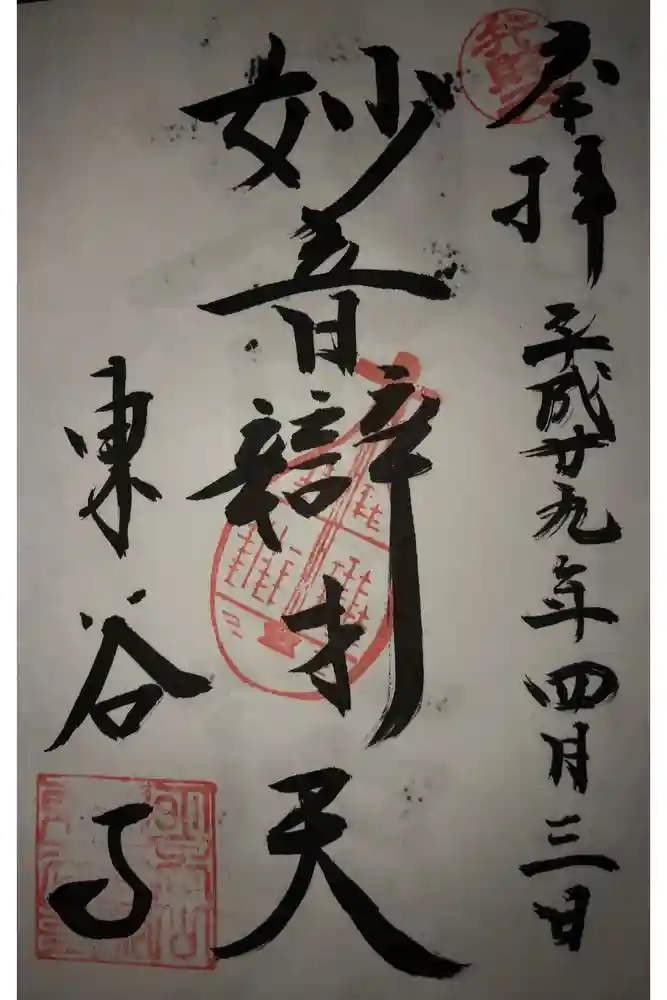 奉拝
平成廿九年四月三日
妙音辯才天
東谷寺